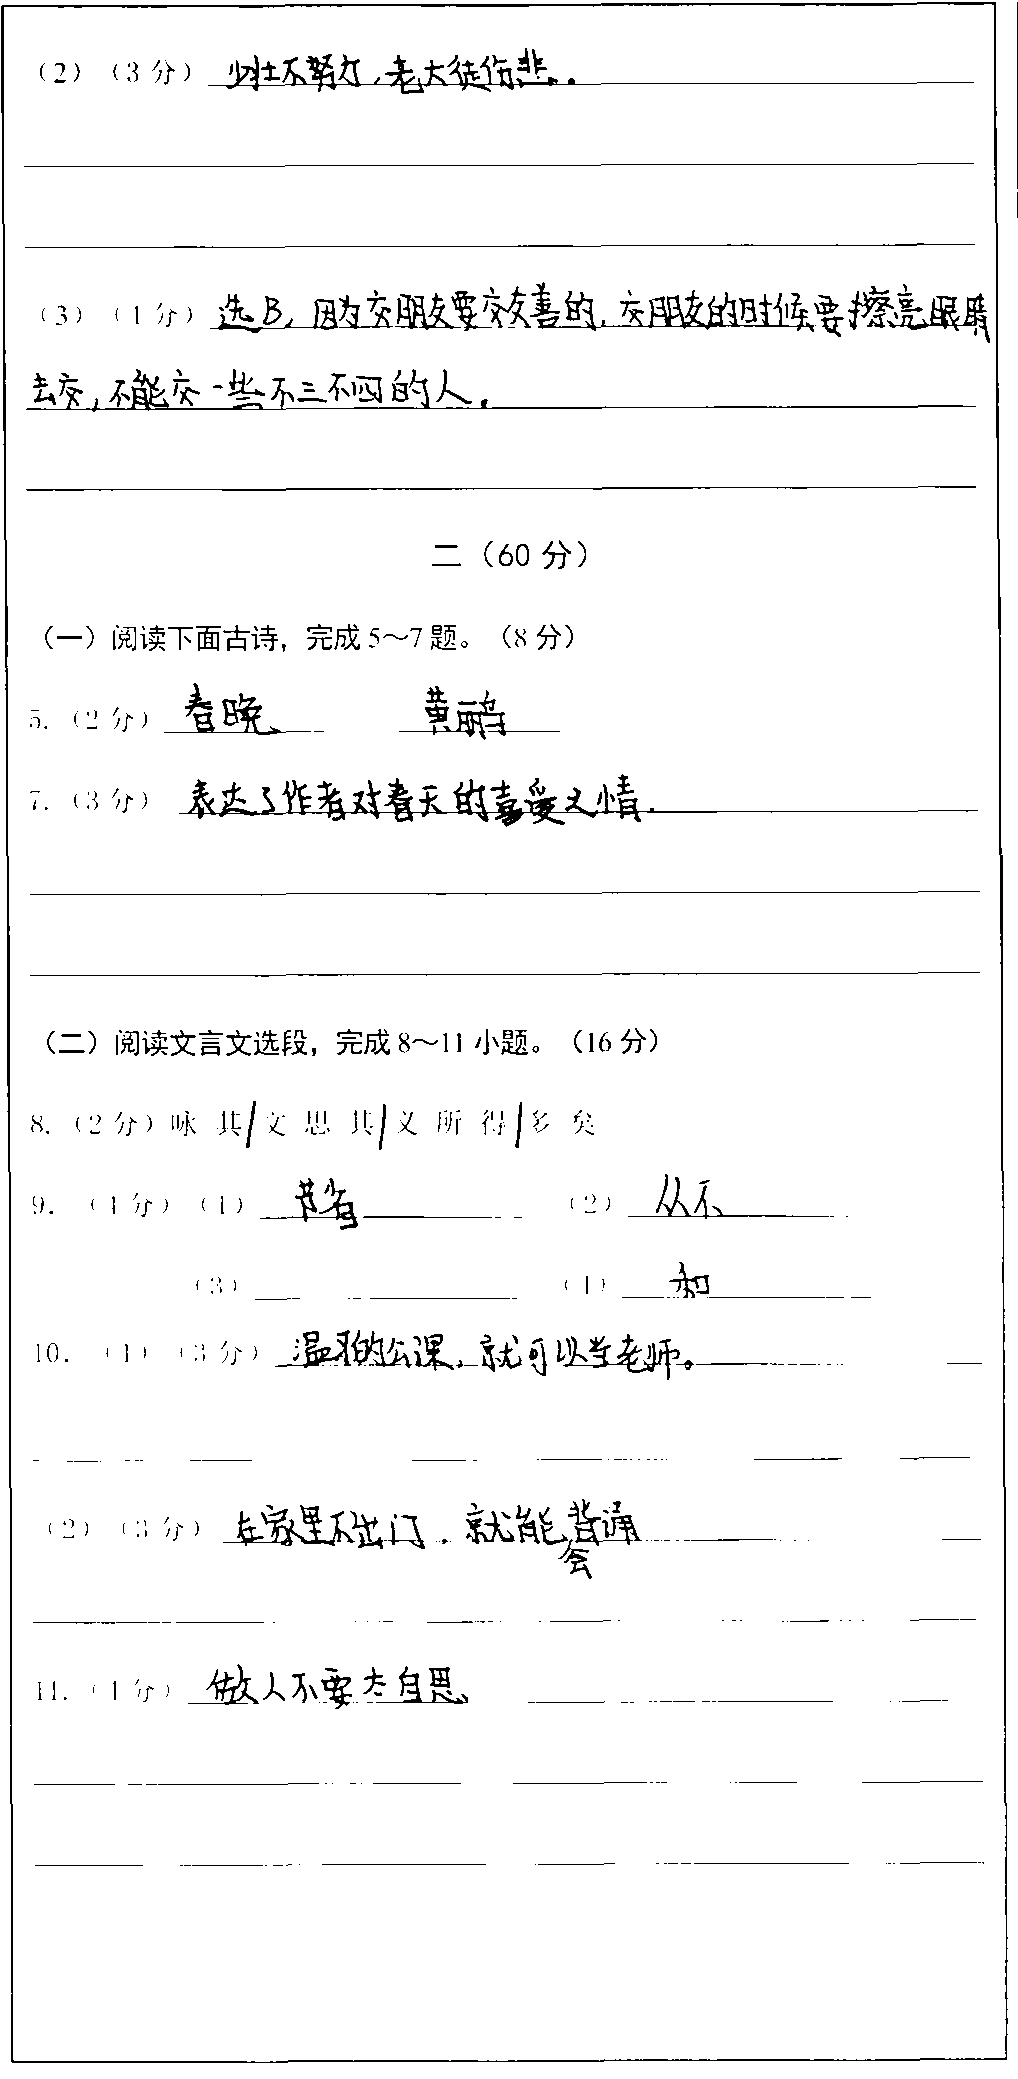 （2）（3分）少壮不努力，老大徒伤悲。
（3）（4分）选B，因为交朋友要交友善的，交朋友的时候要擦亮眼睛
去交，不能交一些不三不四的人。
二（60分）
（一）阅读下面古诗，完成5～7题。（8分）
5.（2分）春晚 黄鹂
7.（3分）表达了作者对春天的喜爱之情.
（二）阅读文言文选段，完成8～11小题。（16分）
8.（2分）咏 其/文 思 其/义 所 得/多 矣
9.（4分）（1）节省 （2）从不
（3） （4）和
10.（1）（3分）温习的公课，就可以当老师。
（2）（3分）在家里不出门，就能会背诵
11.（4分）做人不要太自思